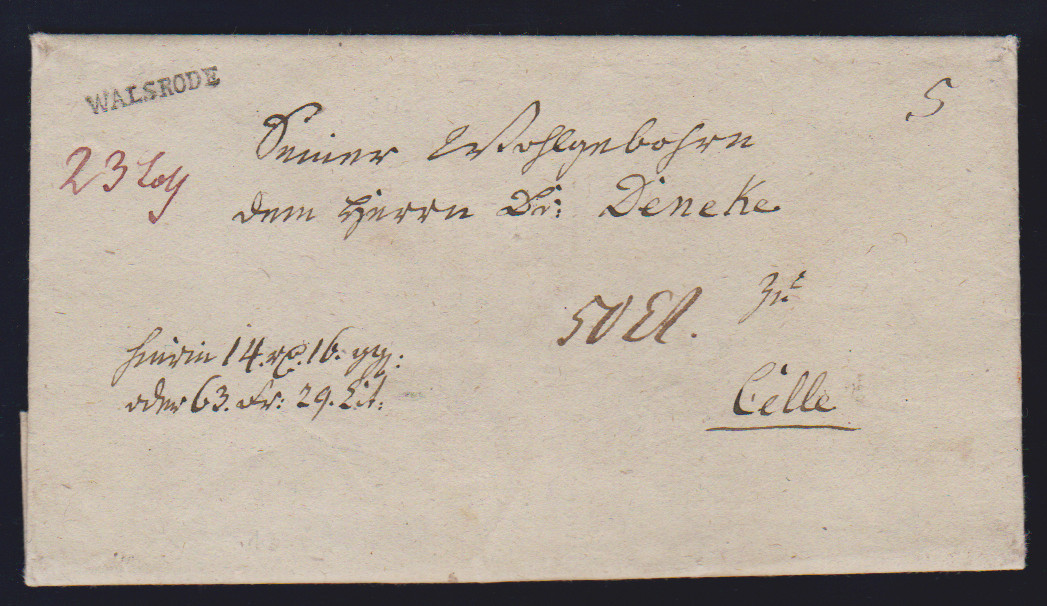 WALSRODE
5
23 Loth
Seiner Wohlgebohrn
dem Herrn Dr: Deneke
zu
Celle
hierin 14. rp. 16. ggr:
oder 63. Fr: 29. Ct: